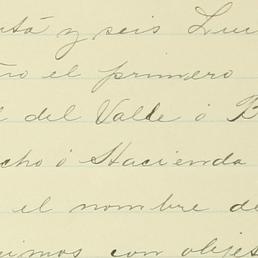 y seis
el primero
del Valle ó B
cho ó Hacienda
el nombre de
con objet